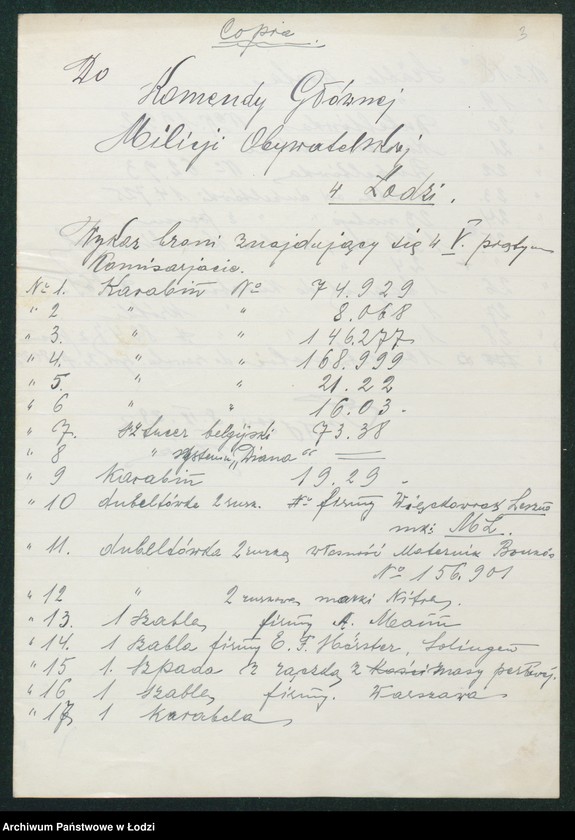 Copia
3
Do
Komendy Głównej
Milicji Obywatelskiej
w Łodzi.
Wykaz broni znajdujący się w V.
Komisarjacie.
No 1. Karabin No 74.929
" 2 " " 8.068
" 3. " " 146.277
" 4. " " 168.999
" 5. " " 21.22
" 6 " " 16.03.
" 7. sztucer belgijski 73.38
" 8 " systemu „Diana"
" 9 Karabin 19.29.
" 10 dubeltówka 2 rusz. No firmy Leszno
mki ML.
" 11. dubeltówka własność Maternik
No 156.901
" 12 " 2 marki Nitro.
" 13. 1 szabla firmy A. Mann
" 14. 1 szabla firmy E. F. Hörster, Solingen
" 15 1. szpada z z kości masy perłowej.
" 16 1 szabla firmy. Warszawa
" 17 1 Karabela
Archiwum Państwowe w Łodzi